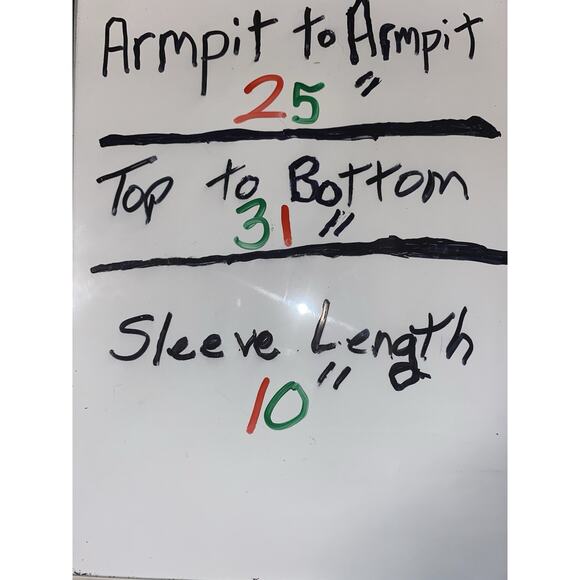 Armpit to Armpit
25"
Top to Bottom
31"
Sleeve Length
10"